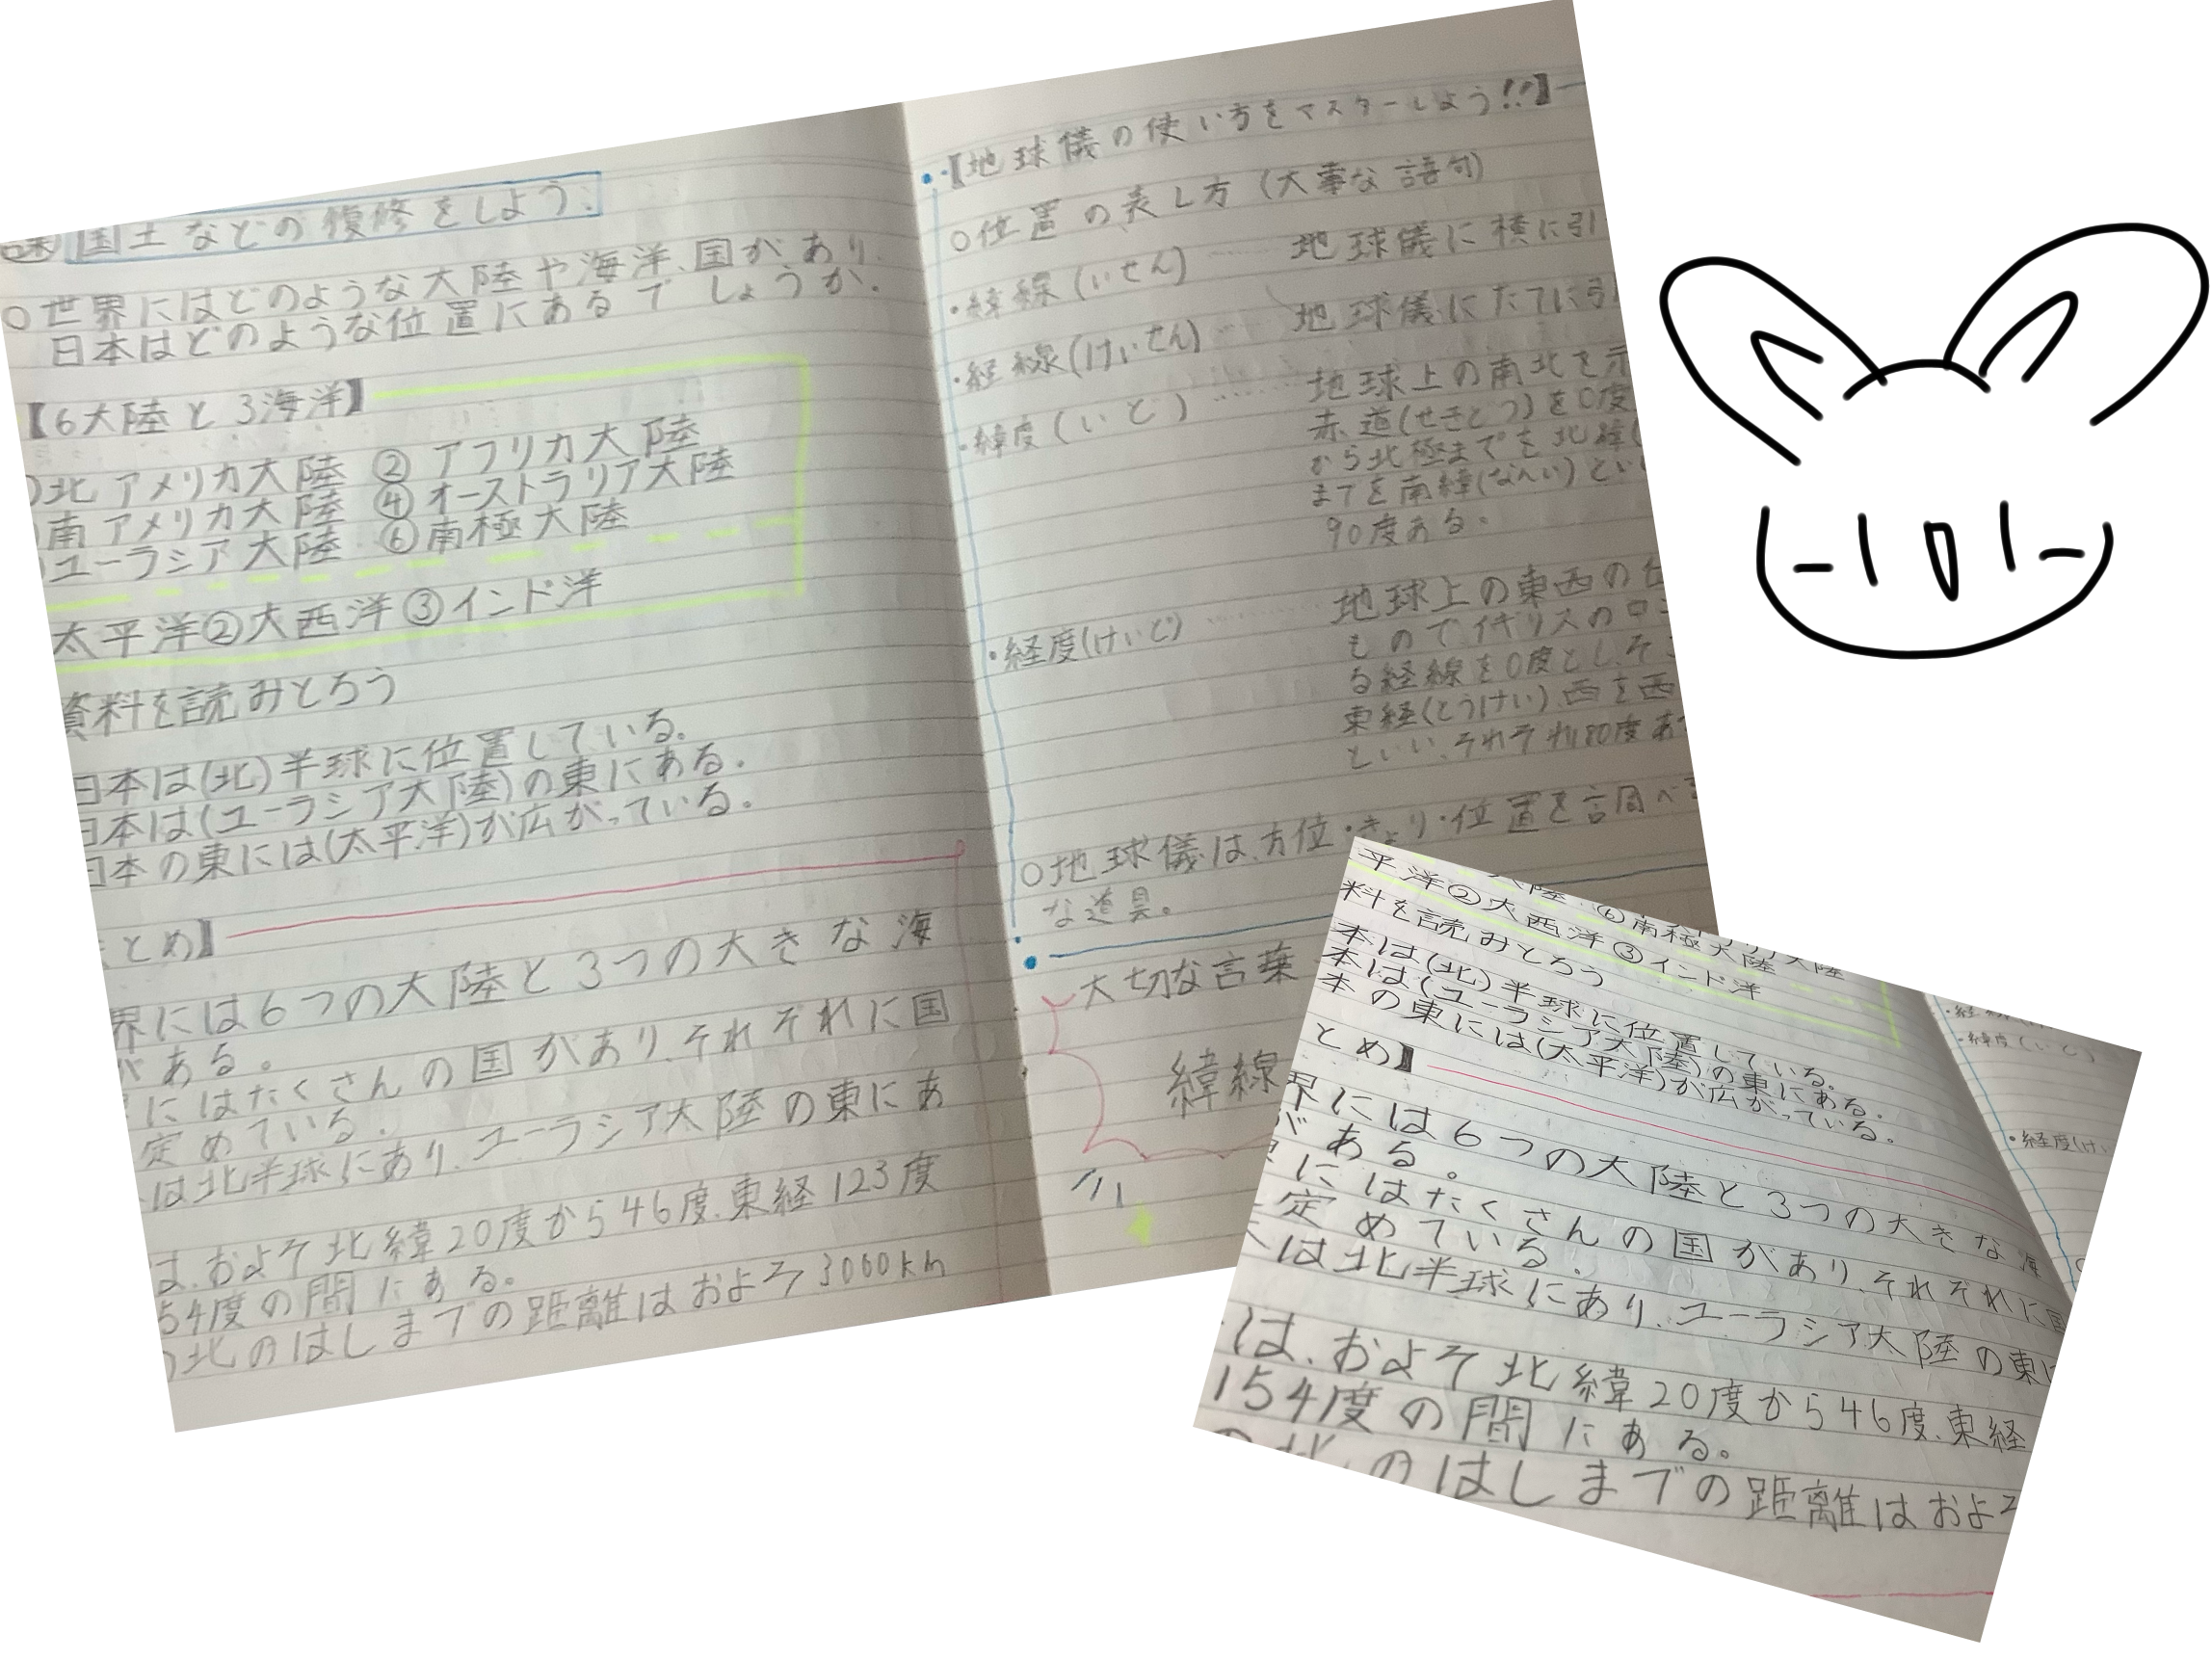 国土などの復修をしよう.
○世界にはどのような大陸や海洋、国が、あり、
日本はどのような位置にあるでしょうか.
【6大陸と3海洋】
北アメリカ大陸 ② アフリカ大陸
南アメリカ大陸 ④ オーストラリア大陸
ユーラシア大陸 ⑥ 南極大陸
太平洋②大西洋③インド洋
資料を読みとろう
日本は(北)半球に位置している.
日本は(ユーラシア大陸)の東にある.
日本の東には(太平洋)が広がっている.
とめ】
界には6つの大陸と3つの大きな海
がある。
にはたくさんの国があり、それぞれに国
定めている.
は北半球にあり、ユーラシア大陸の東にあ
は、およそ北緯20度から46度、東経123度
54度の間にある。
北のはしまでの距離はおよそ3000km
【地球儀の使い方をマスターしよう!!】
○位置の表し方(大事な語句)
・緯線(いせん)……地球儀に横に引
・経線(けいせん)……地球儀にたてに引
・緯度(いど)……地球上の南北を示
赤道(せきどう)を0度
から北極までを北緯(
までを南緯(なんい)とい
90度ある.
・経度(けいど)……地球上の東西の位
もので、イギリスのロン
る経線を0度とし、そこ
東経(とうけい)、西を西
といい、それぞれ180度あ
○地球儀は、方位・きょり・位置を調べ
な道具。
大切な言葉
緯線
大陸 ⑥南極大陸
平洋②大西洋③インド洋
料を読みとろう
本は(北)半球に位置している.
本は(ユーラシア大陸)の東にある.
本の東には(太平洋)が広がっている.
とめ】
界には6つの大陸と3つの大きな海
がある。
にはたくさんの国があり、それぞれに国
定めている.
は北半球にあり、ユーラシア大陸の東に
は、およそ北緯20度から46度、東経
154度の間にある。
北のはしまでの距離はおよそ
・緯度(いど)
・経度(けい